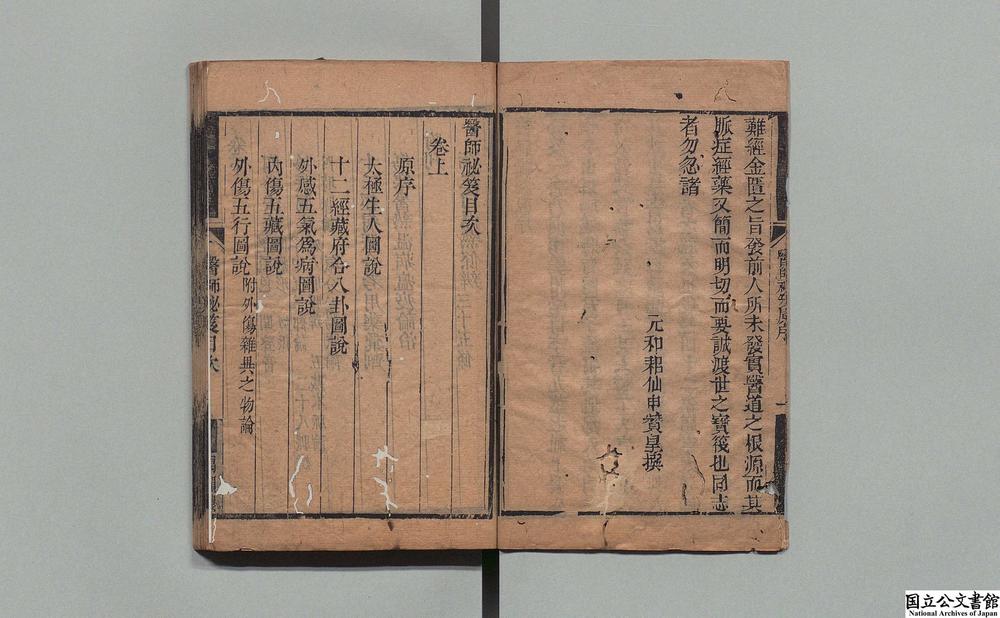 難經金匱之旨發前人所未發實醫道之根源而其
脈症經藥又簡而明切而要誠渡世之寶筏也同志
者勿忽諸
元和耜仙申贊皇撰
醫師祕笈目次
卷上
原序
太極生人圖說
十二經藏府合八卦圖說
外感五氣爲病圖說
內傷五藏圖說
外傷五行圖說 附外傷雜具之物論
醫師祕笈目次
国立公文書館
National Archives of Japan